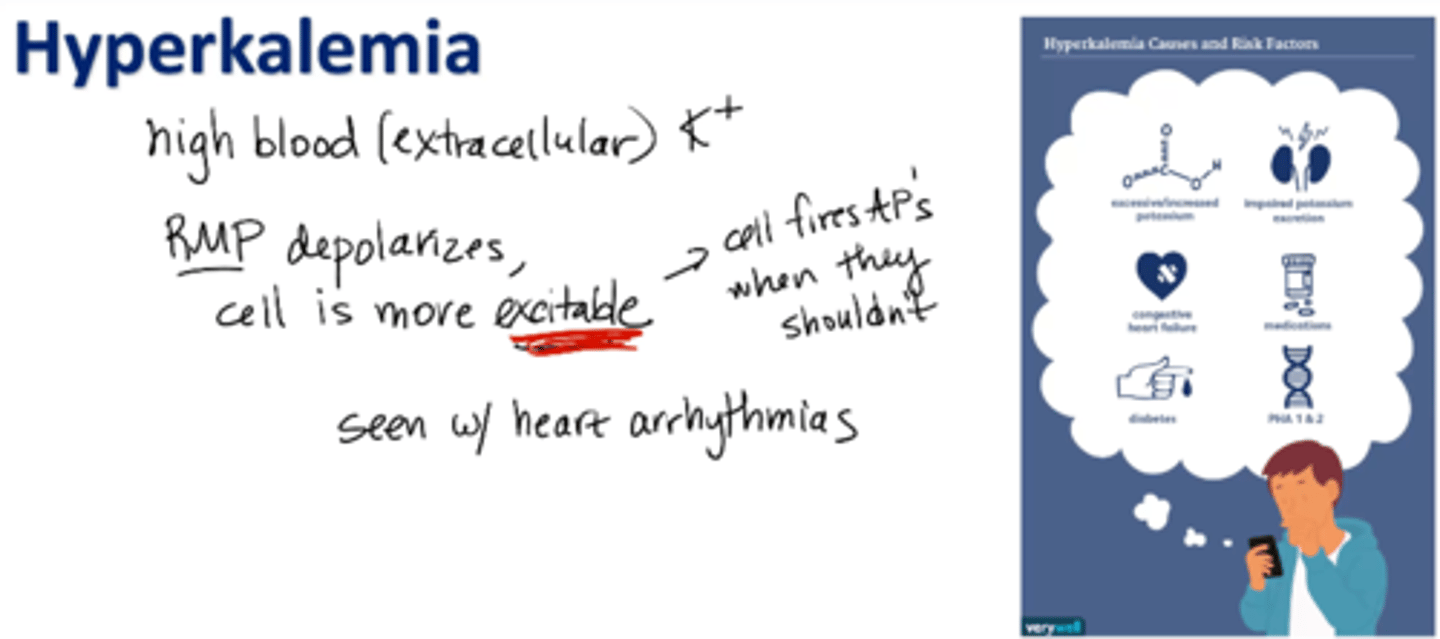 Hyperkalemia
high blood (extracellular) K+
RMP depolarizes,
cell is more excitable
→ cell fires AP's
when they
shouldn't
seen w/ heart arrhythmias
Hyperkalemia Causes and Risk Factors
O
O
C
O
H
excessive/increased
potassium
impaired potassium
excretion
congestive
heart failure
medications
diabetes
PHA 1 & 2
verywell